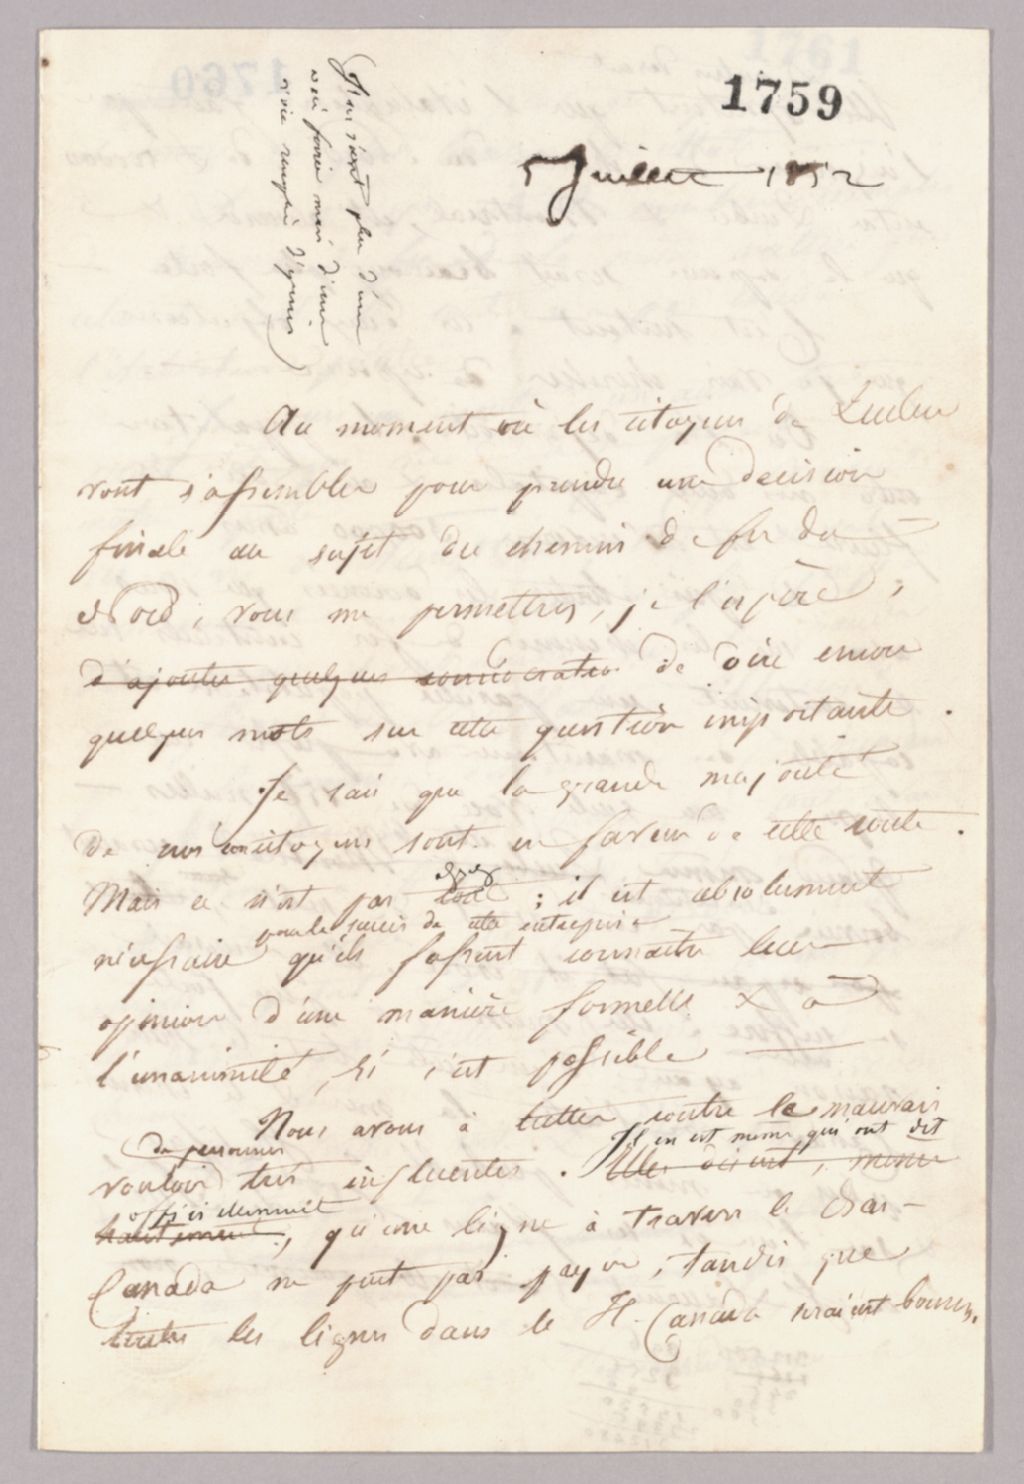 1759
5 Juillet 1852
(Il ne s'agit plus d'une
voie ferrée mais d'une
voie remplie d'épines)
Au moment où les citoyens de Quebec
vont s'assembler pour prendre une decision
finale au sujet du chemin de fer du
Nord, vous me permettrez, je l'espère,
d'ajouter quelques considerations de dire encore
quelques mots sur cette question importante.
Je sais que la grande majorité
de nos concitoyens sont en faveur de cette route.
assez
Mais ce n'est pas tout ; il est absolument
pour le succès de cette entreprise
nécessaire qu'ils fassent connaitre leur
opinion d'une manière formelle & à
l'unanimité, si c'est possible —
Nous avons à lutter contre le mauvais
de personnes Il en est même qui ont dit
vouloir très influentes. Elles disent, même
officiellement
hautement, qu'une ligne à travers le Bas-
Canada ne peut pas payer, tandis que
toutes les lignes dans le H-Canada seraient bonnes.